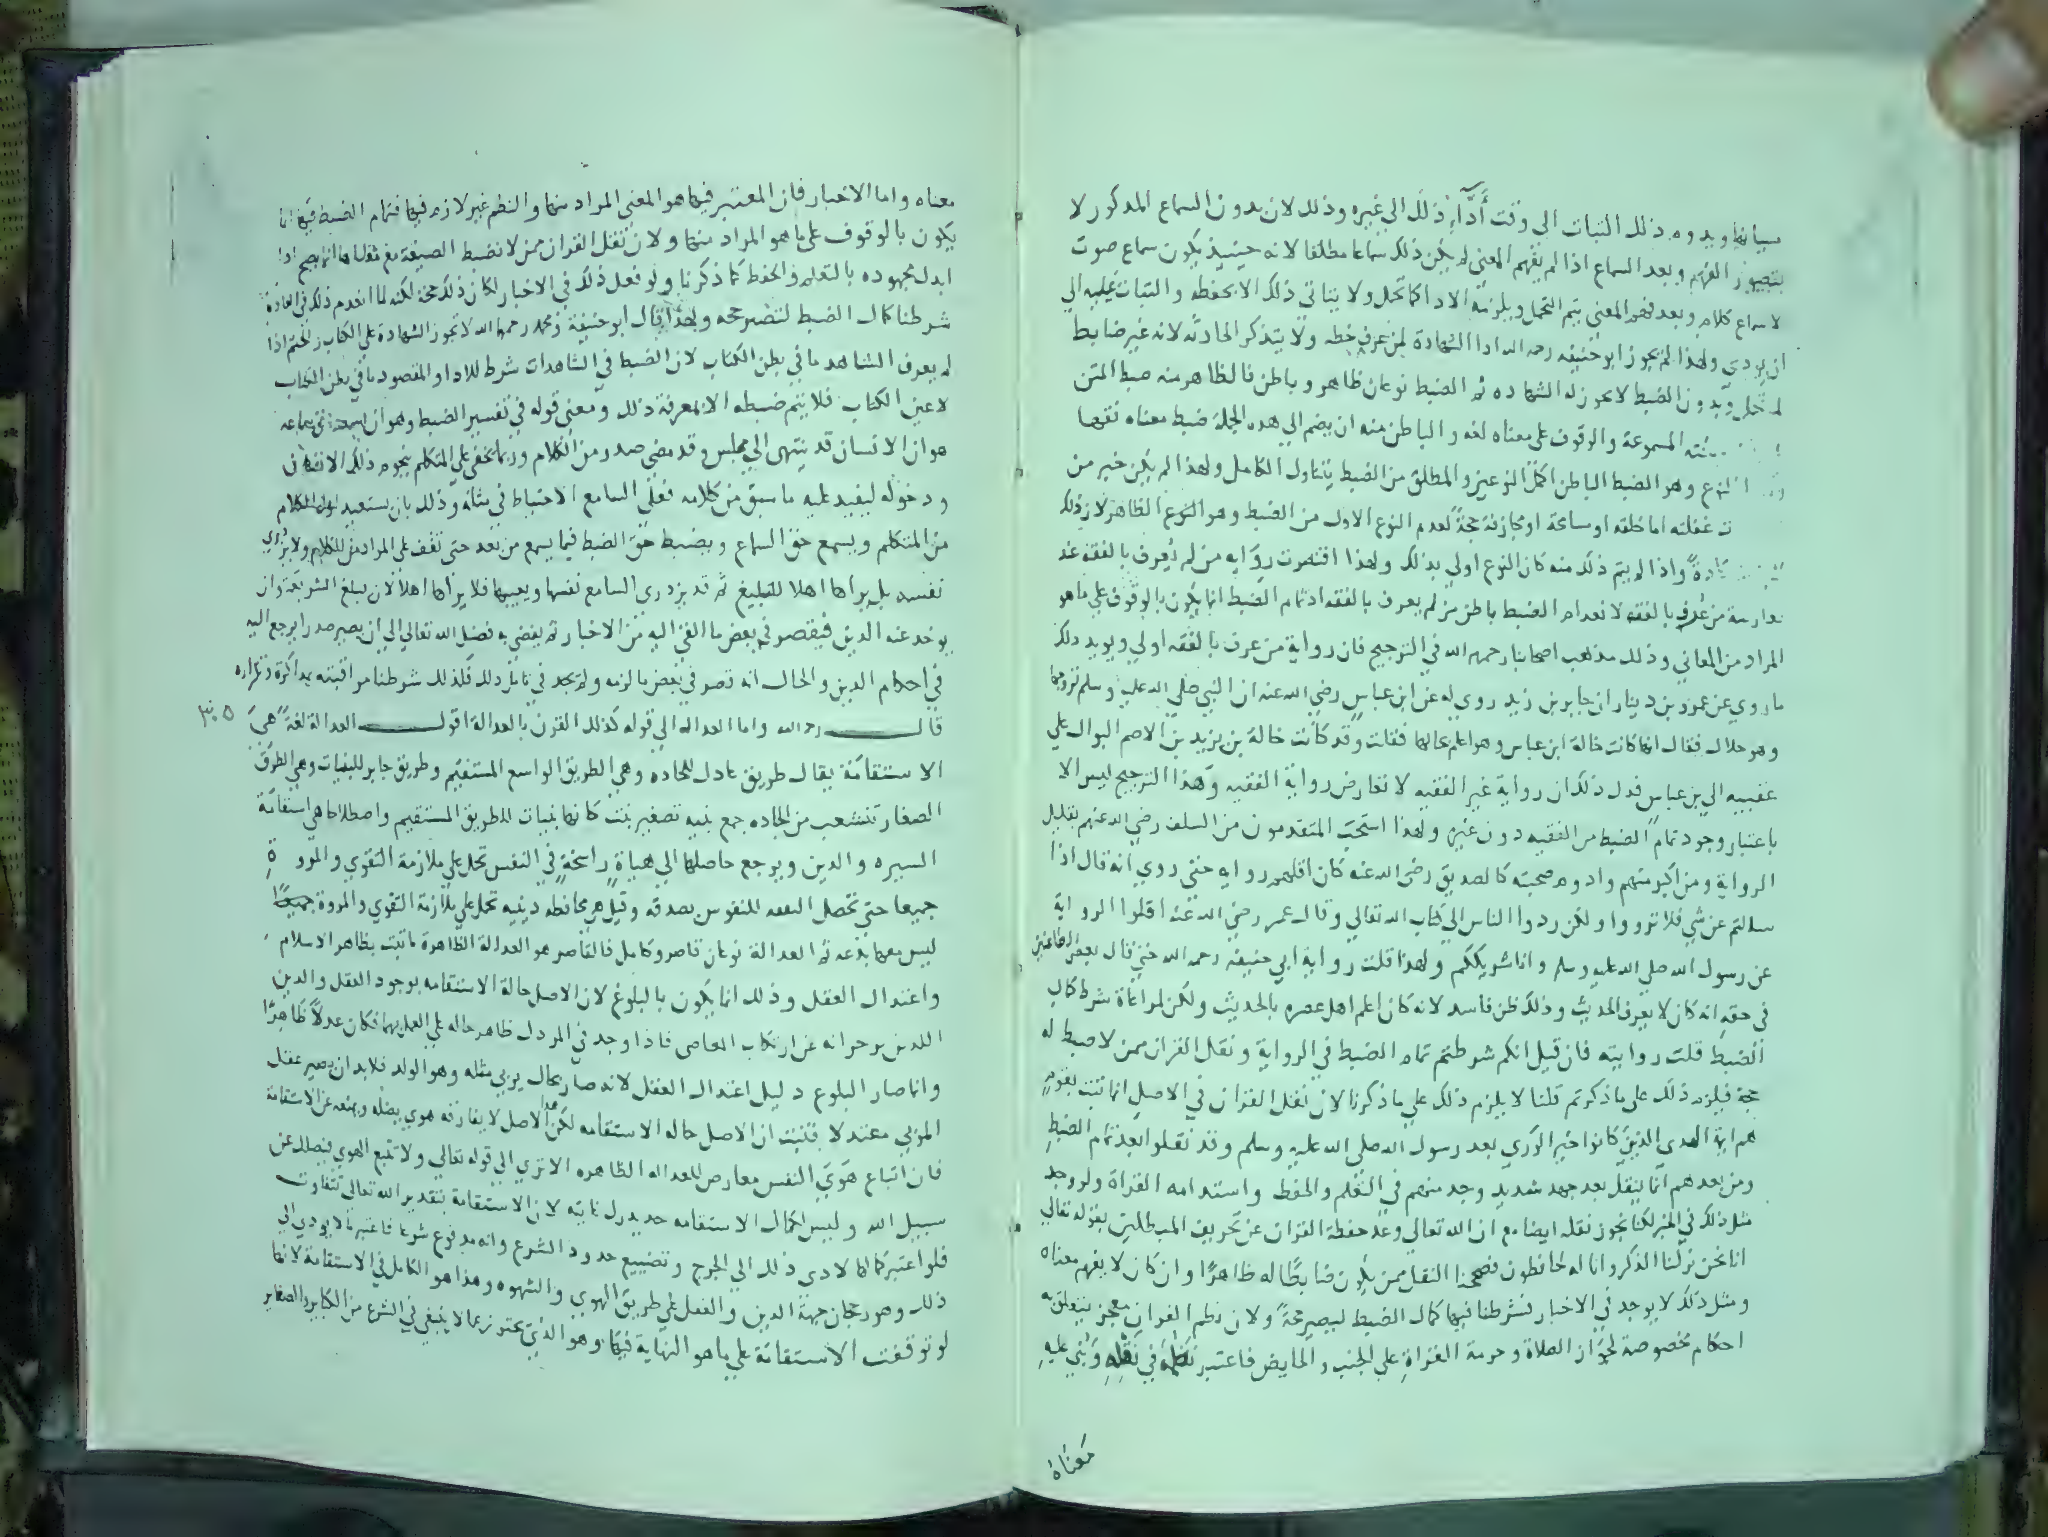 بيانها وبدوه ذلك الثبات الى وقت أداء ذلك الى غيره وذلك لان بدون السماع المذكور لا
يتصور الفهم وبعد السماع اذا لم يفهم المعنى لم يكن ذلك سماعا مطلقا لانه حينيذ يكون سماع صوت
لا سماع كلام وبعد فهم المعنى يتم التحمل ويلزمه الادا كما تحمل ولا يتاتي ذلك الا بحفظه والثبات عليه الى
ان يودي ولهذا لم يجوز ابو حنيفه رحمه الله ادا الشهادة لمن عرف خطه ولا يتذكر الحادثه لانه غير ضابط
لما تحمل وبدون الضبط لا يجوز له الشهاده ثم الضبط نوعان ظاهر وباطن فالظاهر منه ضبط المتن
المسموعة والوقوف على معناه لغه والباطن منه ان يضم الى هده الجملة ضبط معناه فقها
النوع وهو الضبط الباطن اكمل النوعين والمطلق من الضبط يتناول الكامل ولهذا لم يكن خبر من
غفلته اما خلقه او مسامحة او مجازفة حجة لعدم النوع الاول من الضبط وهو النوع الظاهر لان ذلك
واذا لم يتم ذلك منه كان النوع اولي بذلك ولهذا اقتصرت رواية من لم يعرف بالفقه عند
معارضة من عرف بالفقه لانعدام الضبط باطن ممن لم يعرف بالفقه اذ تمام الضبط انما يكون بالوقوف على ما هو
المراد من المعاني وذلك مذهب اصحابنا رحمهم الله في الترجيح فان رواية من عرف بالفقه اولي ويويد ذلك
ما روي عن عمرو بن دينار ان جابر بن زيد روي له عن ابن عباس رضي الله عنه ان النبي صلي الله عليه وسلم تزوجها
وهو حلال فقال انها كانت خالة ابن عباس وهو اعلم بحالها فقلت وقد كانت خالة بن يزيد بن الاصم البوال على
عقبيه الي بن عباس فدل ذلك ان رواية غير الفقيه لا تعارض رواية الفقيه وهذا الترجيح ليس الا
باعتبار وجود تمام الضبط من الفقيه دون غيره ولهذا استحب المتقدمون من السلف رضي الله عنهم تقليل
الرواية ومن اكبر منهم وادوم صحبته كالصديق رضى الله عنه كان اقلهم روايه حتى روي انه قال اذا
سالتم عن شي فلا ترووا ولكن ردوا الناس الى كتاب الله تعالي وقال عمر رضي الله عنه اقلوا الرواية
عن رسول الله صلي الله عليه وسلم وانا شريككم ولهذا قلت رواية ابي حنيفه رحمه الله حتى قال بعض الطاعنين
في حقه انه كان لا يعرف الحديث وذلك ظن فاسد لانه كان اعلم اهل عصره بالحديث ولكن لمراعاة شرط كمال
الضبط قلت روايته فان قيل انكم شرطتم تمام الضبط في الرواية ونقل القران ممن لا ضبط له
حجة فيلزم ذلك على ما ذكرتم قلنا لا يلزم ذلك علي ما ذكرنا لان نقل القران في الاصل انما ثبت بقوم
هم اية الهدى الذين كانوا خير الورى بعد رسول الله صلى الله عليه وسلم وقد نقلوا بعد تمام الضبط
ومن بعدهم انما ينقل بعد جهد شديد وجد منهم في التعلم والحفظ واستدامه القراة ولو وجد
مثل ذلك في الخبر لكنا نجوز نقله ايضا مع ان الله تعالي وعد حفظة القران عن تحريف المبطلين بقوله تعالى
انا نحن نزلنا الذكر وانا له لحافظون فصححنا النقل ممن يكون ضابطا له ظاهرا وان كان لا يفهم معناه
ومثل ذلك لا يوجد في الاخبار فشرطنا فيها كمال الضبط ليصير حجة ولان نظم القران معجز يتعلق به
احكام مخصوصة لجواز الصلاة وحرمة القراة على الجنب والحايض فاعتبر نظمه في نقله وبني عليه
معناه
معناه واما الاخبار فان المعتبر فيها هو المعنى المراد منها والنظم غير لازم فيها فتمام الضبط فيها انما
يكون بالوقوف على ما هو المراد منها ولان نقل القران ممن لا نضبط الصيغة مع نقلها انما يصح اذا
ابدل مجهوده بالتعلم والحفظ كما ذكرنا ولو فعل ذلك في الاخبار لكان ذلك حجة لكنه لما انعدم ذلك في العادة
شرطنا كمال الضبط لتصير حجه ولهذا قال ابو حنيفة ومحمد رحمهما الله لا تجوز الشهادة على الكتاب والختم اذا
لم يعرف الشاهد ما في بطن الكتاب لان الضبط في الشاهدات شرط للادا والمقصود ما في بطن الكتاب
لا عين الكتاب فلا يتم ضبطه الا بمعرفة ذلك ومعنى قوله في تفسير الضبط وهو ان يسمعه حق سماعه
هو ان الانسان قد ينتهى الي مجلس وقد مضى صدر من الكلام وربما يخفى على المتكلم هجومه ذلك
ودخوله ليعيد عليه ما سبق من كلامه فعلى السامع الاحتياط في مثله وذلك بان يستعيد اول الكلام
من المتكلم ويسمع حق السماع ويضبط حق الضبط فيما يسمع من بعد حتى تقف على المراد من الكلام ولا يزدري
نفسه بل يراها اهلا للتبليغ ثم قد يزدرى السامع نفسها ويعيبها فلا يراها اهلا لان يبلغ الشريعة وان
يوخد عنه الدين فيقصر في بعض ما القي اليه من الاخبار ثم يفضي به فضل الله تعالي الى ان يصير صدرا يرجع اليه
في احكام الدين والحال انه قصر في بعض ما لزمه ولم يجد في تامل ذلك فلذلك شرطنا مراقبته بمذاكرة وتكراره
قال رحمه الله واما العدالة الى قوله كذلك القرن بالعدالة اقول العدالة لغة هى
الاستقامة يقال طريق عادل للجاده وهي الطريق الواسع المستقيم وطريق جاير للبنيات وهي الطرق
الصغار تنشعب من الجاده جمع بنيه تصغير بنت كانها بنيات للطريق المستقيم واصطلاحا هي استقامة
السيره والدين ويرجع حاصلها الى هياة راسخة في النفس تحمل على ملازمة التقوي والمروة
جميعا حتى تحصل الثقه للنفوس بصدقه وقيل هي محافظه دينيه تحمل علي ملازمة التقوي والمروة جميعا
ليس معها بدعه ثم العدالة نوعان قاصر وكامل فالقاصر هو العدالة الظاهرة ما ثبت بظاهر الاسلام
واعتدال العقل وذلك انما يكون بالبلوغ لان الاصل حالة الاستقامه بوجود العقل والدين
اللدين يزجرانه عن ارتكاب المعاصى فاذا وجد في المر دل ظاهر حاله على العمل بهما فكان عدلا ظاهرا
وانما صار البلوغ دليل اعتدال العقل لانه صار بحال يربي مثله وهو الولد فلا بد ان يصير عقل
المربي معتدلا فثبت ان الاصل حاله الاستقامه لكن هذا الاصل لا يفارقه هوي يضله ويمنعه عن الاستقامة
فان اتباع هوى النفس معارض للعداله الظاهره الا تري الي قوله تعالي ولا تتبع الهوي فيضلك عن
سبيل الله وليس لكمال الاستقامه حد يدرك غايته لان الاستقامة بتقدير الله تعالى تتفاوت
فلو اعتبر كمالها لادى ذلك الى الحرج وتضييع حدود الشرع وانه مدفوع شرعا فاعتبر ما لا يودي الى
ذلك وهو رجحان جهة الدين والعقل على طريق الهوي والشهوه وهذا هو الكامل في الاستقامة لانها
لو توقفت الاستقامة على ما هو النهاية فيها وهو الذي يحترز عما لا ينبغي في الشرع من الكباير والصغاير